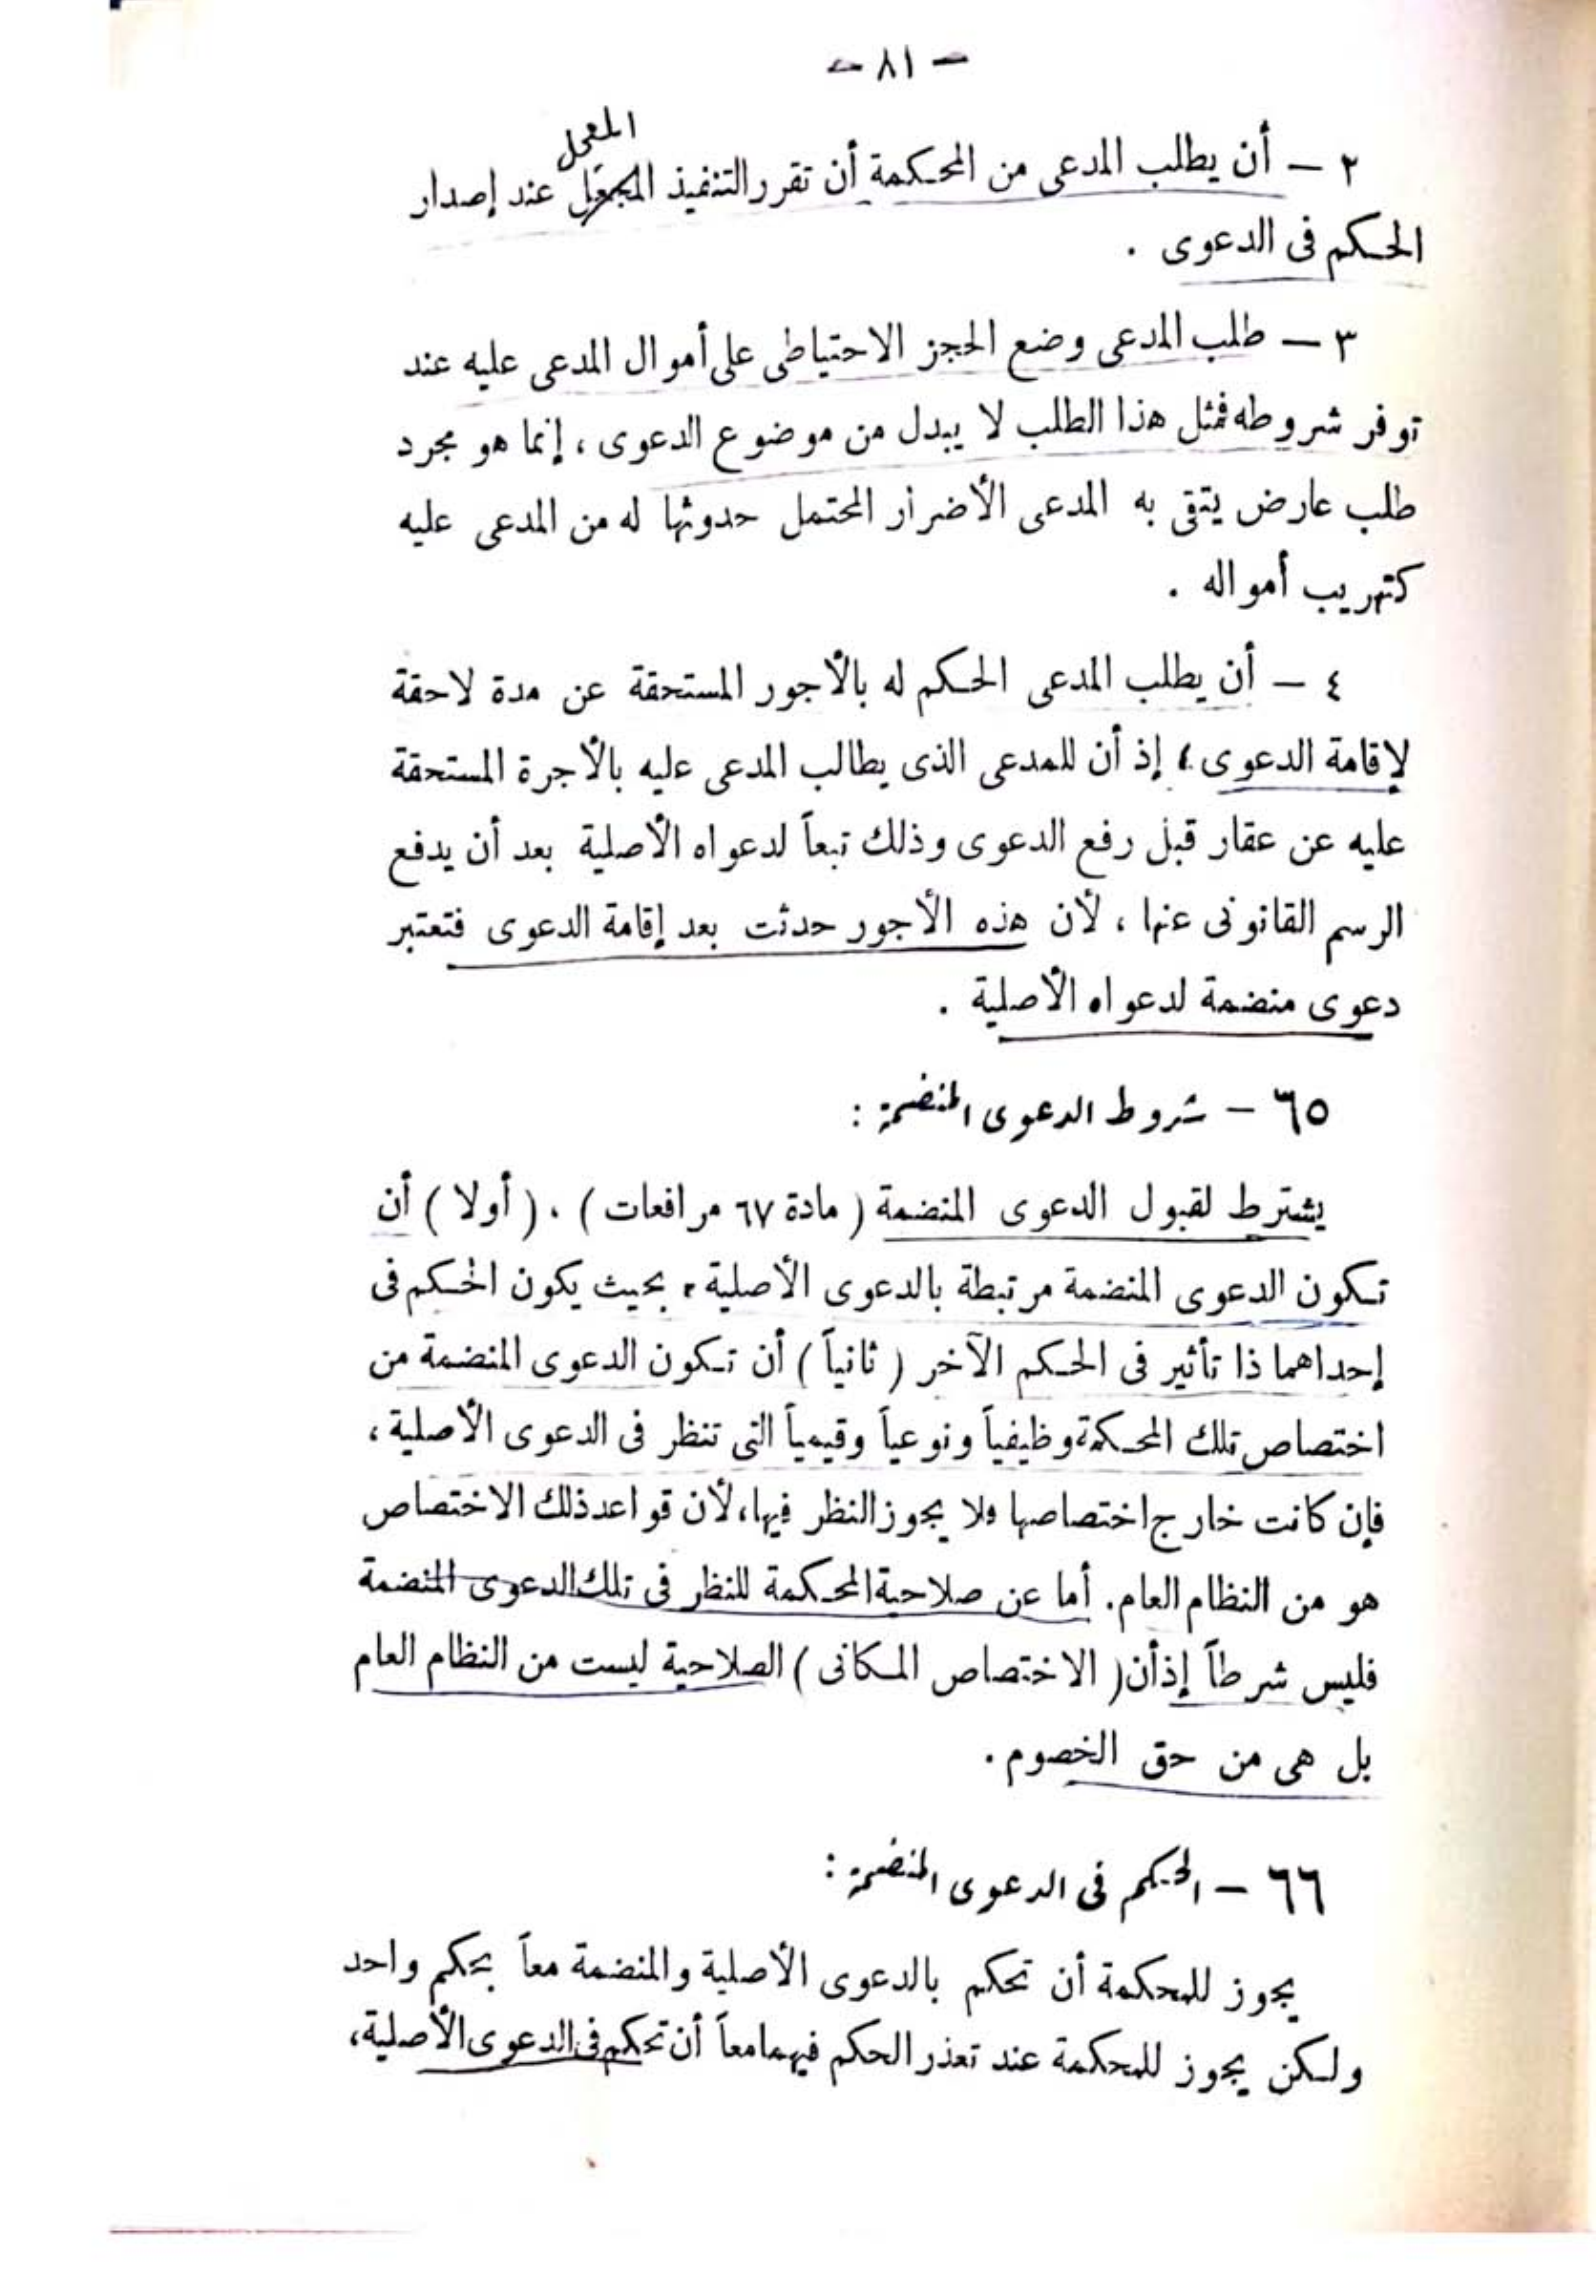 - ٨١ -
المعجل
٢ - أن يطلب المدعى من المحكمة أن تقرر التنفيذ عند إصدار
الحكم فى الدعوى .
٣ - طلب المدعى وضع الحجز الاحتياطى على أموال المدعى عليه عند
توفر شروطه فمثل هذا الطلب لا يبدل من موضوع الدعوى ، إنما هو مجرد
طلب عارض يتقى به المدعى الأضرار المحتمل حدوثها له من المدعى عليه
كتهريب أمواله .
٤ - أن يطلب المدعى الحكم له بالأجور المستحقة عن مدة لاحقة
لإقامة الدعوى ، إذ أن للمدعى الذى يطالب المدعى عليه بالأجرة المستحقة
عليه عن عقار قبل رفع الدعوى وذلك تبعاً لدعواه الأصلية بعد أن يدفع
الرسم القانونى عنها ، لأن هذه الأجور حدثت بعد إقامة الدعوى فتعتبر
دعوى منضمة لدعواه الأصلية .
٦٥ - شروط الدعوى المنضمة :
يشترط لقبول الدعوى المنضمة ( مادة ٦٧ مرافعات ) ، ( أولا ) أن
تكون الدعوى المنضمة مرتبطة بالدعوى الأصلية ، بحيث يكون الحكم فى
إحداهما ذا تأثير فى الحكم الآخر ( ثانياً ) أن تكون الدعوى المنضمة من
اختصاص تلك المحكمة وظيفياً ونوعياً وقيمياً التى تنظر فى الدعوى الأصلية ،
فإن كانت خارج اختصاصها فلا يجوز النظر فيها ، لأن قواعد ذلك الاختصاص
هو من النظام العام . أما عن صلاحية المحكمة للنظر فى تلك الدعوى المنضمة
فليس شرطاً إذ أن ( الاختصاص المكانى ) الصلاحية ليست من النظام العام
بل هى من حق الخصوم .
٦٦ - الحكم فى الدعوى المنضمة :
يجوز للمحكمة أن تحكم بالدعوى الأصلية والمنضمة معاً بحكم واحد
ولكن يجوز للمحكمة عند تعذر الحكم فيهما معاً أن تحكم فى الدعوى الأصلية ،